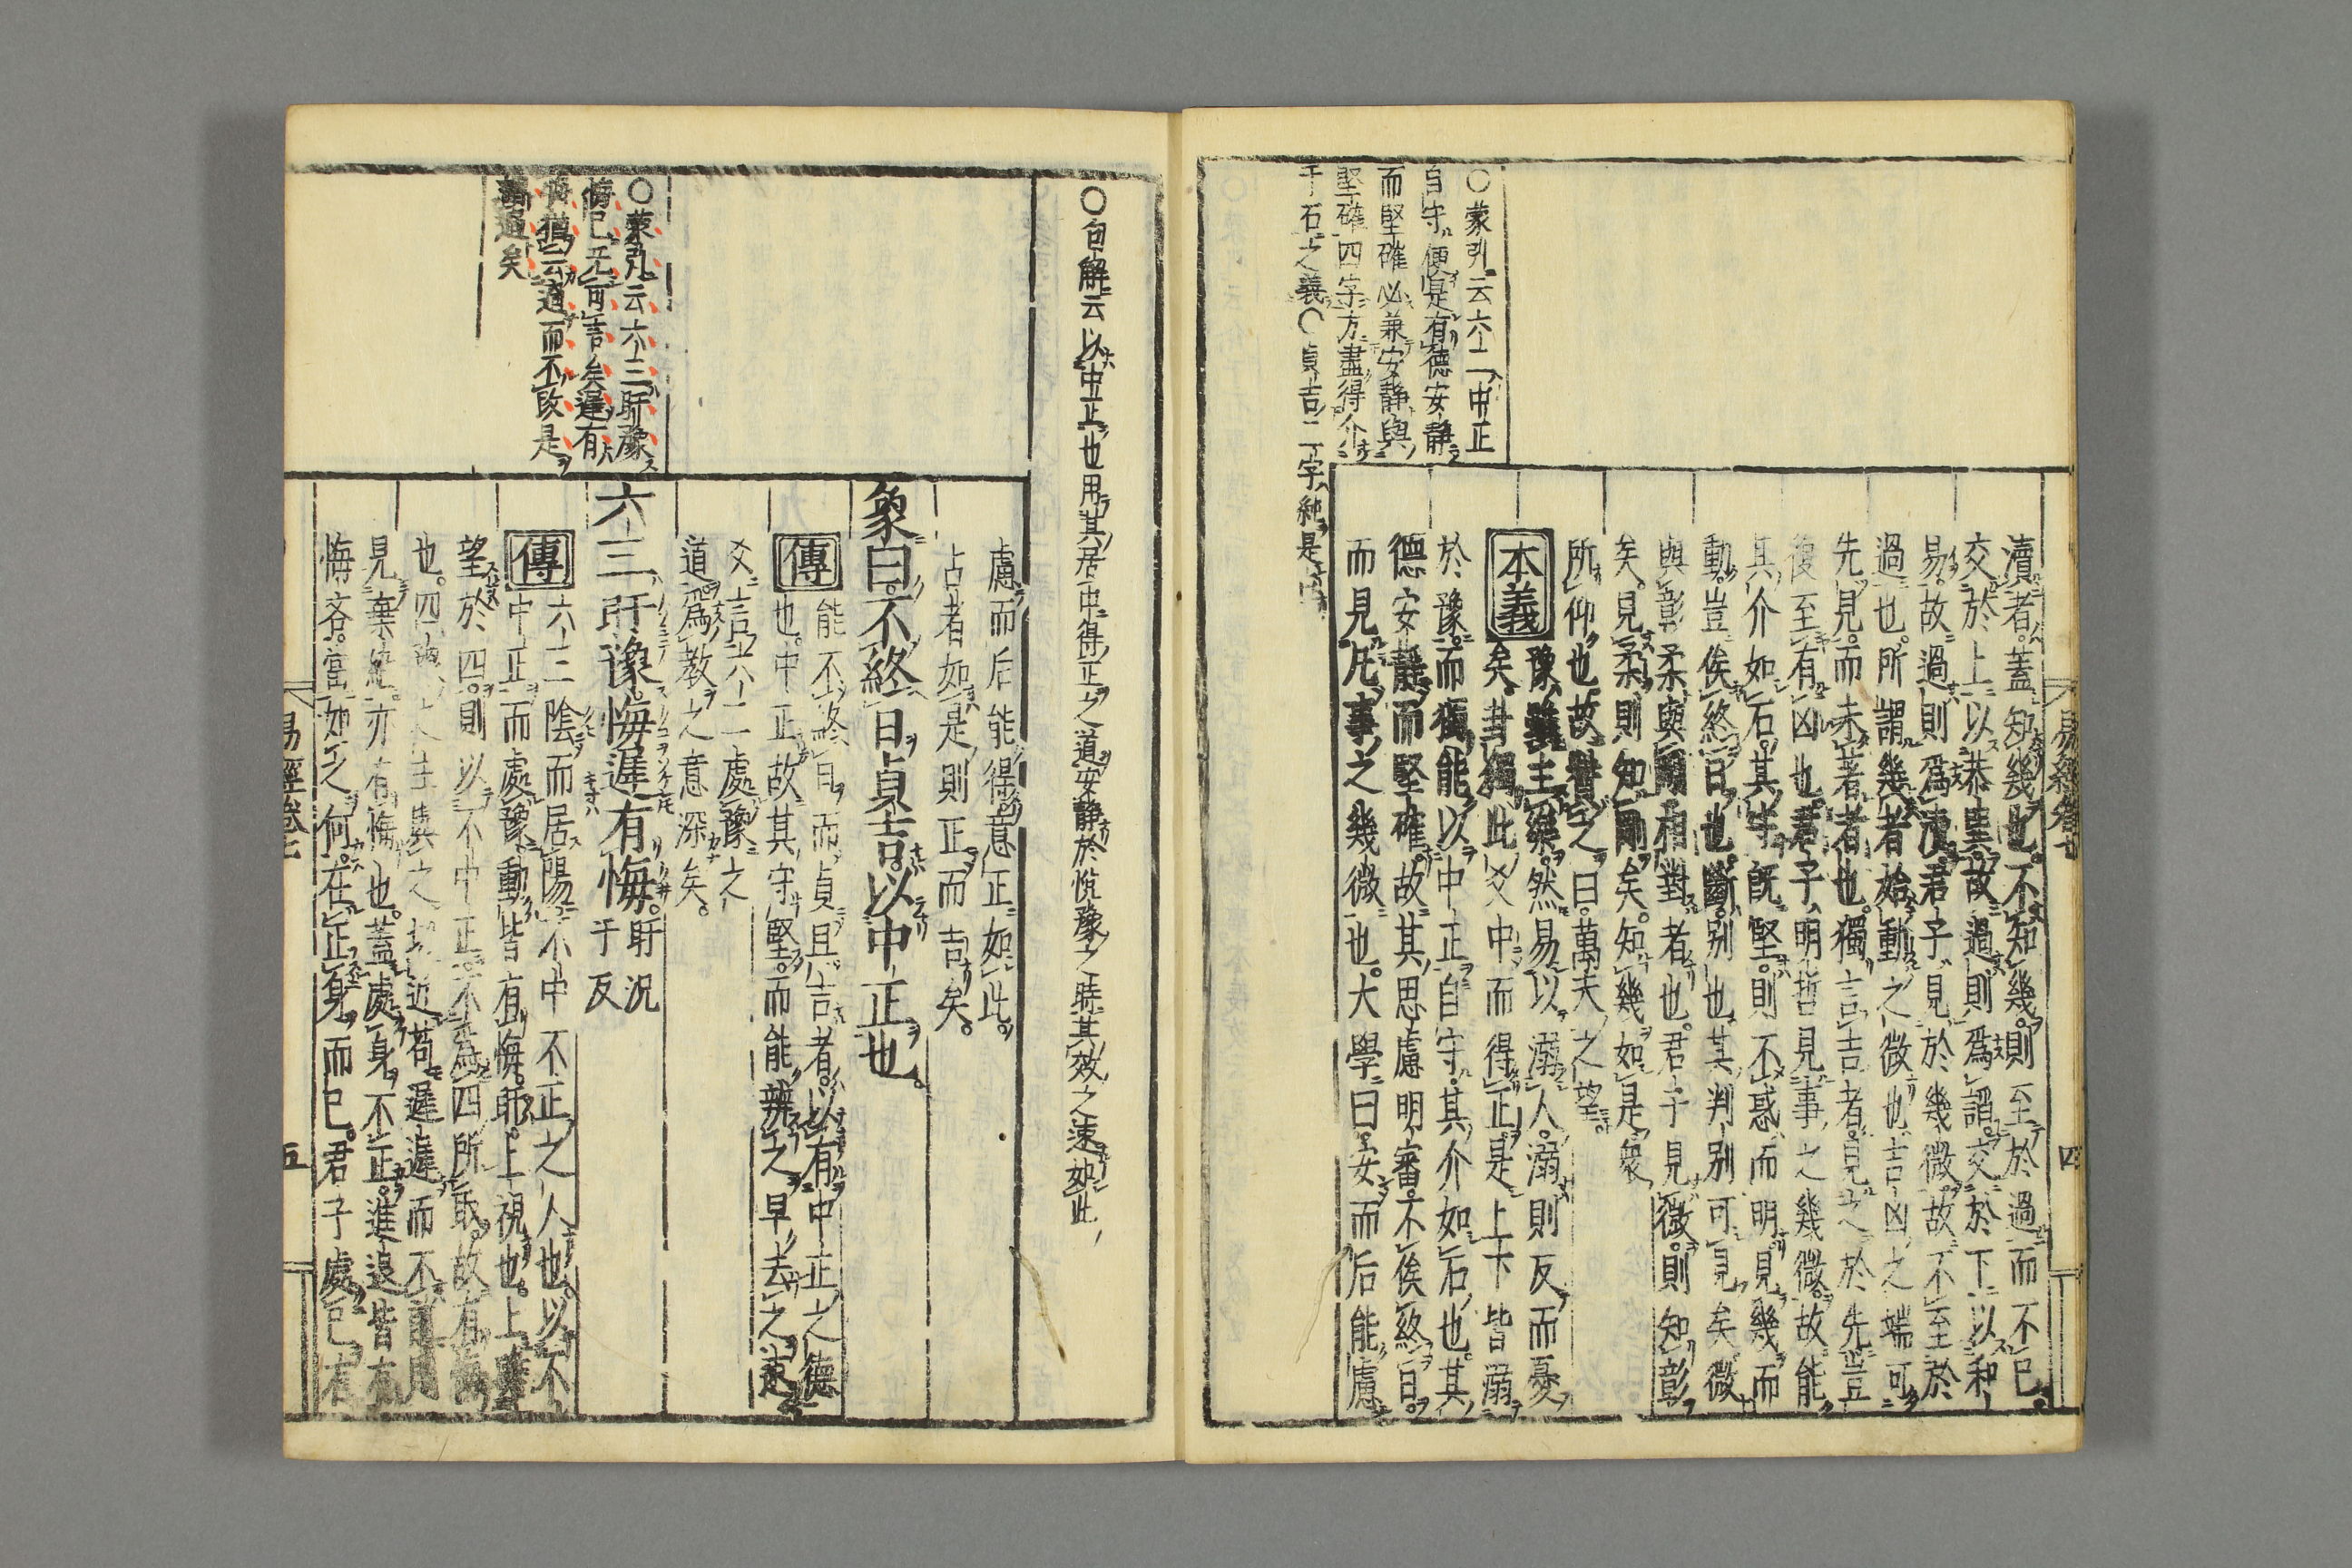 ○蒙引云六二中正
自守便是有德安靜
而堅確必兼安靜與
堅確四字方盡得介
于石之義○貞吉二字純是
易經卷七
四
瀆者。蓋知幾也。不知幾。則至於過而不已
交於上以恭巽。故過則爲諂。交於下以和
易。故過則爲瀆。君子見於幾微。故不至於
過也。所謂幾者。始動之微也。吉凶之端可
先見。而未著者也。獨言吉者。見之於先。豈
復至有凶也。君子明哲。見事之幾微。故能
其介如石。其守旣堅。則不惑而明。見幾而
動。豈俟終日也。斷。別也。其判別可見矣。微
與彰。柔與剛。相對者也。君子見微。則知彰
矣。見柔。則知剛矣。知幾如是。衆
所仰也。故贊之曰。萬夫之望
本義
豫雖主樂。然易以溺人。溺則反而憂
矣。卦獨此爻中而得正。是上下皆溺
於豫。而獨能以中正自守。其介如石也。其
德安靜而堅確。故其思慮明審。不俟終日。
而見凡事之幾微也。大學曰。安而后能慮
○句解云以中正也用其居中得正之道安靜於悅豫之時其效之速如此
慮而后能得。意正如此。
占者如是。則正而吉矣。
象曰。不終日貞吉。以中正也。
傳
能不終日而貞且吉者。以有中正之德
也。中正。故其守堅。而能辨之早。去之速
爻言六二處豫之
道。爲敎之意深矣。
○蒙引云六三盱豫
悔已无可言矣遲有
悔猶云過而不改是
謂過矣
六三盱豫。悔遲有悔。
盱況
于反
傳
六三陰而居陽。不中不正之人也。以不
中正而處豫。動皆有悔。盱。上視也。上瞻
望於四。則以不中正。不爲四所取。故有悔
也。四
近。苟遲遲而不前。則
見棄絕。亦有悔也。蓋處身不正。進退皆有
悔吝。當如之何。在正身而已。君子處己有
易經卷七
五